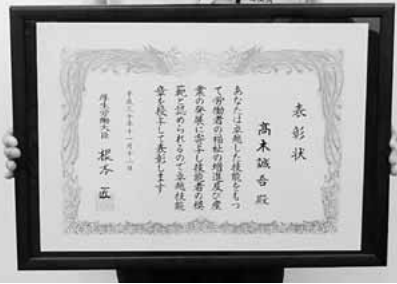 表彰状
高木誠吾殿
あなたは卓越した技能をもつ
て労働者の福祉の増進及び産
業の発展に寄与し技能者の模
範と認められるので卓越技能
章を授与して表彰します
平成三十年十一月十八日
厚生労働大臣 根本匠